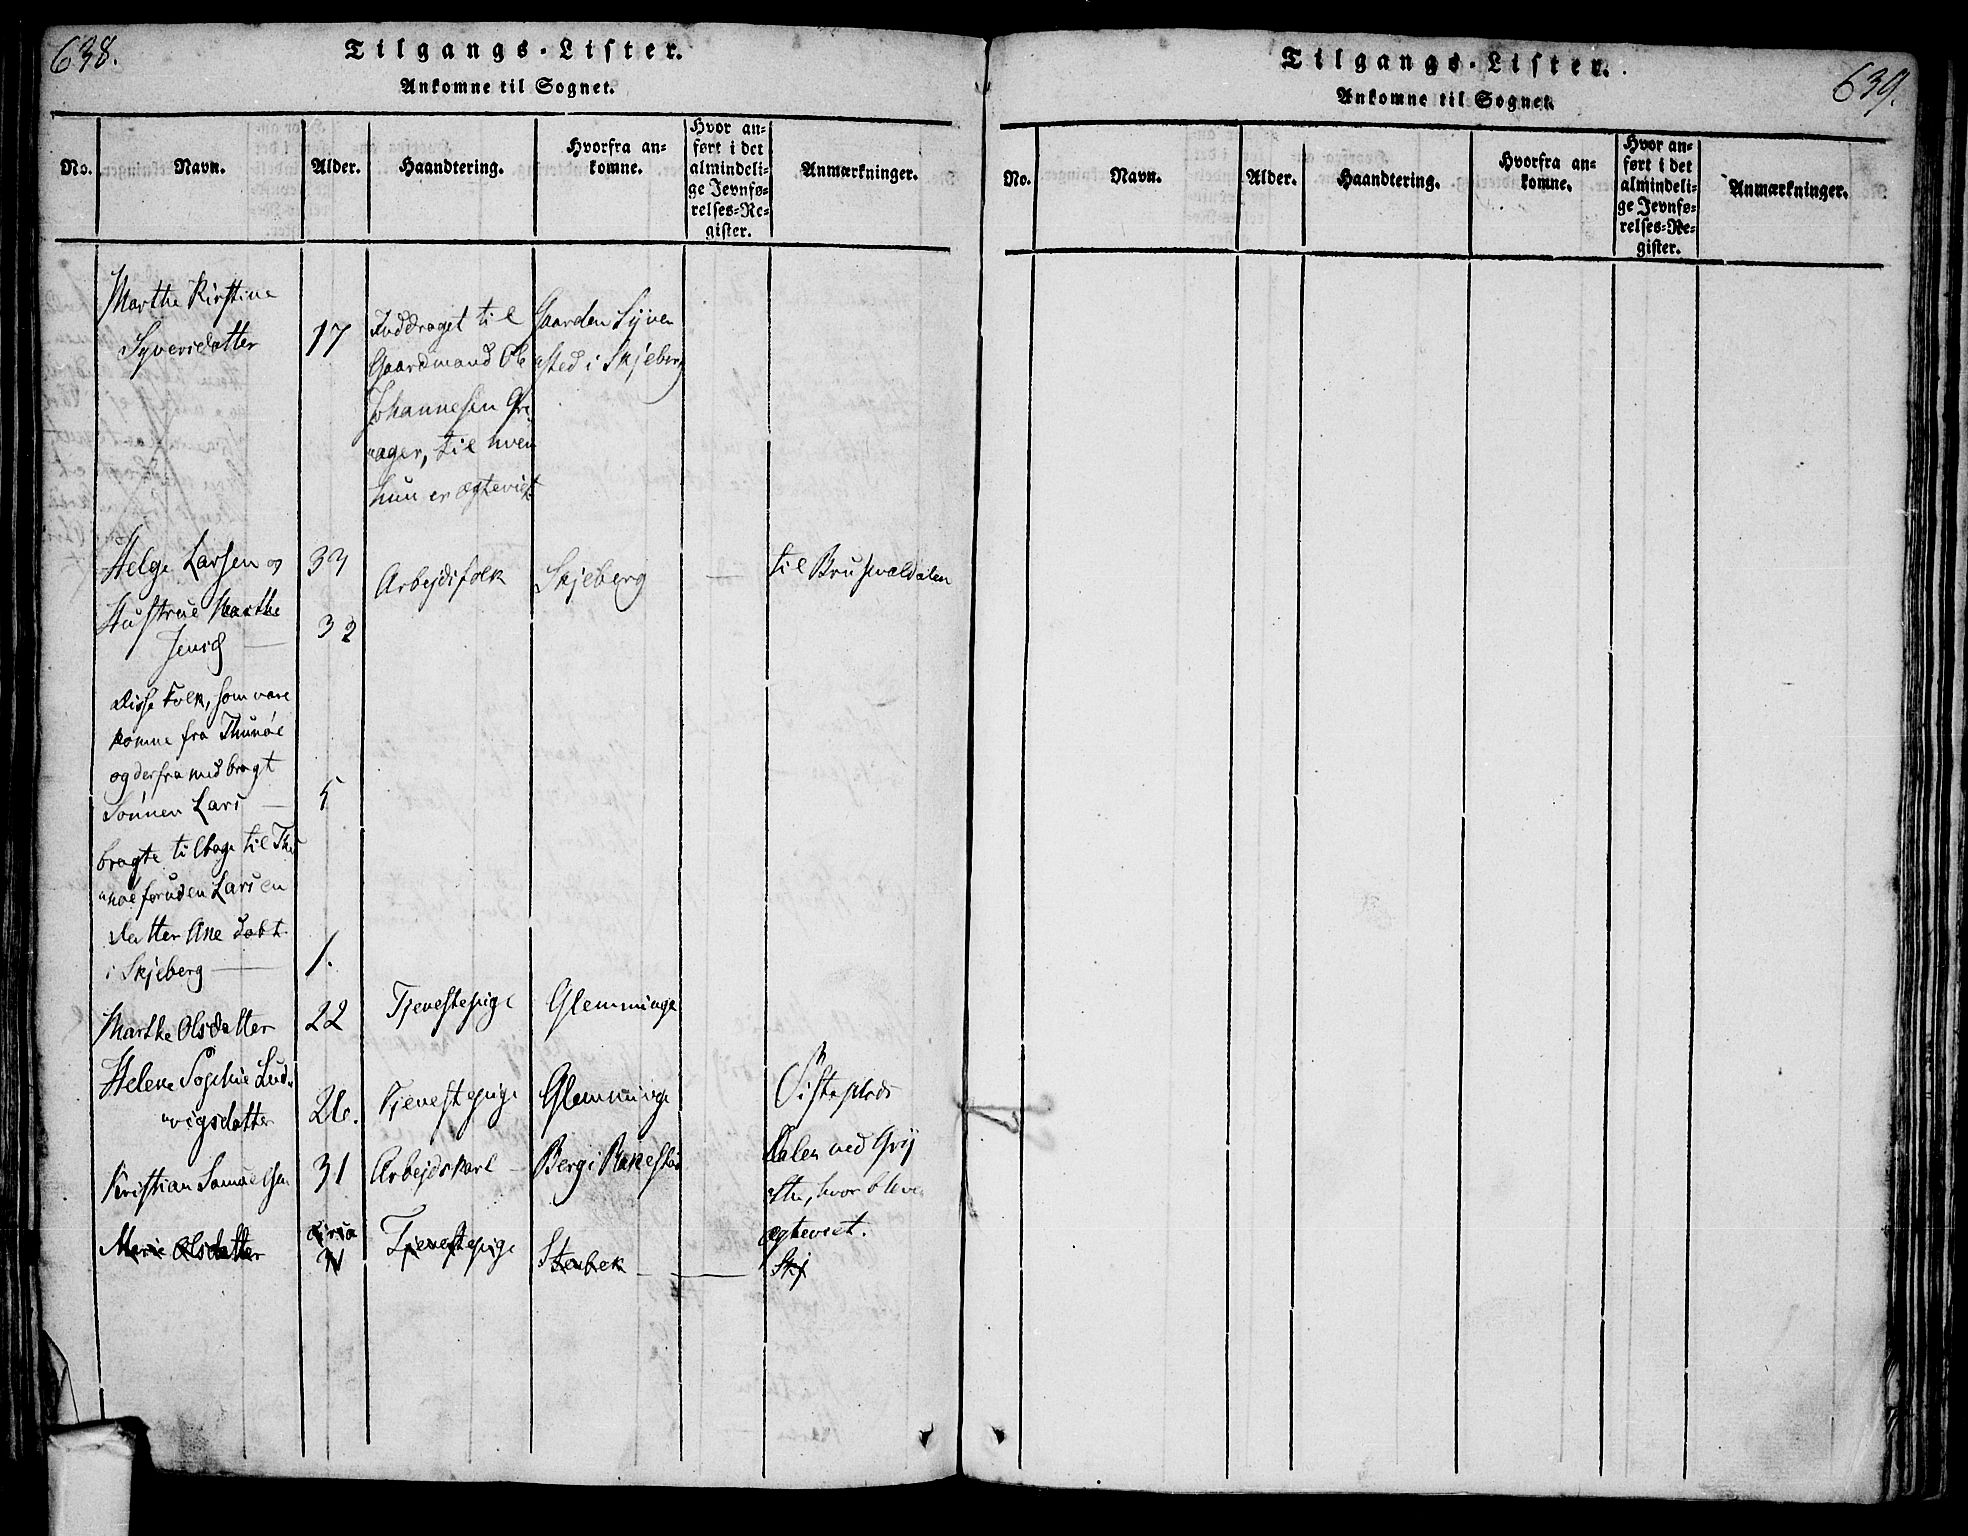 638.
Tilgangs-Lister.
Ankomne til Sognet.
No.
Navn.
Alder.
Haandtering.
Hvorfra an-
komne.
Hvor an-
ført i det
almindeli-
ge Jevnfø-
relses-Re-
gister.
Anmærkninger.
Marthe Kirstine
Syversdatter
17
Inddraget til
Gaardmand Ole
Johannesen
ager, til hvem
hun er ægteviet
Gaarden
sted i Skjeberg
Helge Larsen og
33
Arbejdsfolk
Skjeberg
—
til
Hustrue Marthe
Jensd —
32
Disse Folk, som vare
komne fra Thunøe
og derfra medbragt
Sønnen Lars —
5
bragte tilbage til Thu
"nøe foruden Lars en
datter Ane døbt
i Skjeberg —
1.
Marthe Olsdatter
22
Tjenestepige
Glemminge
Helene Sophie Lud
"vigsdatter
26.
Tjenestepige
Glemminge
Kristian Samuelsen
31
Arbejdskarl —
Berg i Rakkestad
Dalen ved
hvor bleve
ægteviet.
Marie Olsdatter
circa
Tjenestepige
Stenbek —
Skj
639.
Tilgangs-Lister.
Ankomne til Sognet.
No.
Navn.
Alder.
Haandtering.
Hvorfra an-
komne.
Hvor an-
ført i det
almindeli-
ge Jevnfø-
relses-Re-
gister.
Anmærkninger.